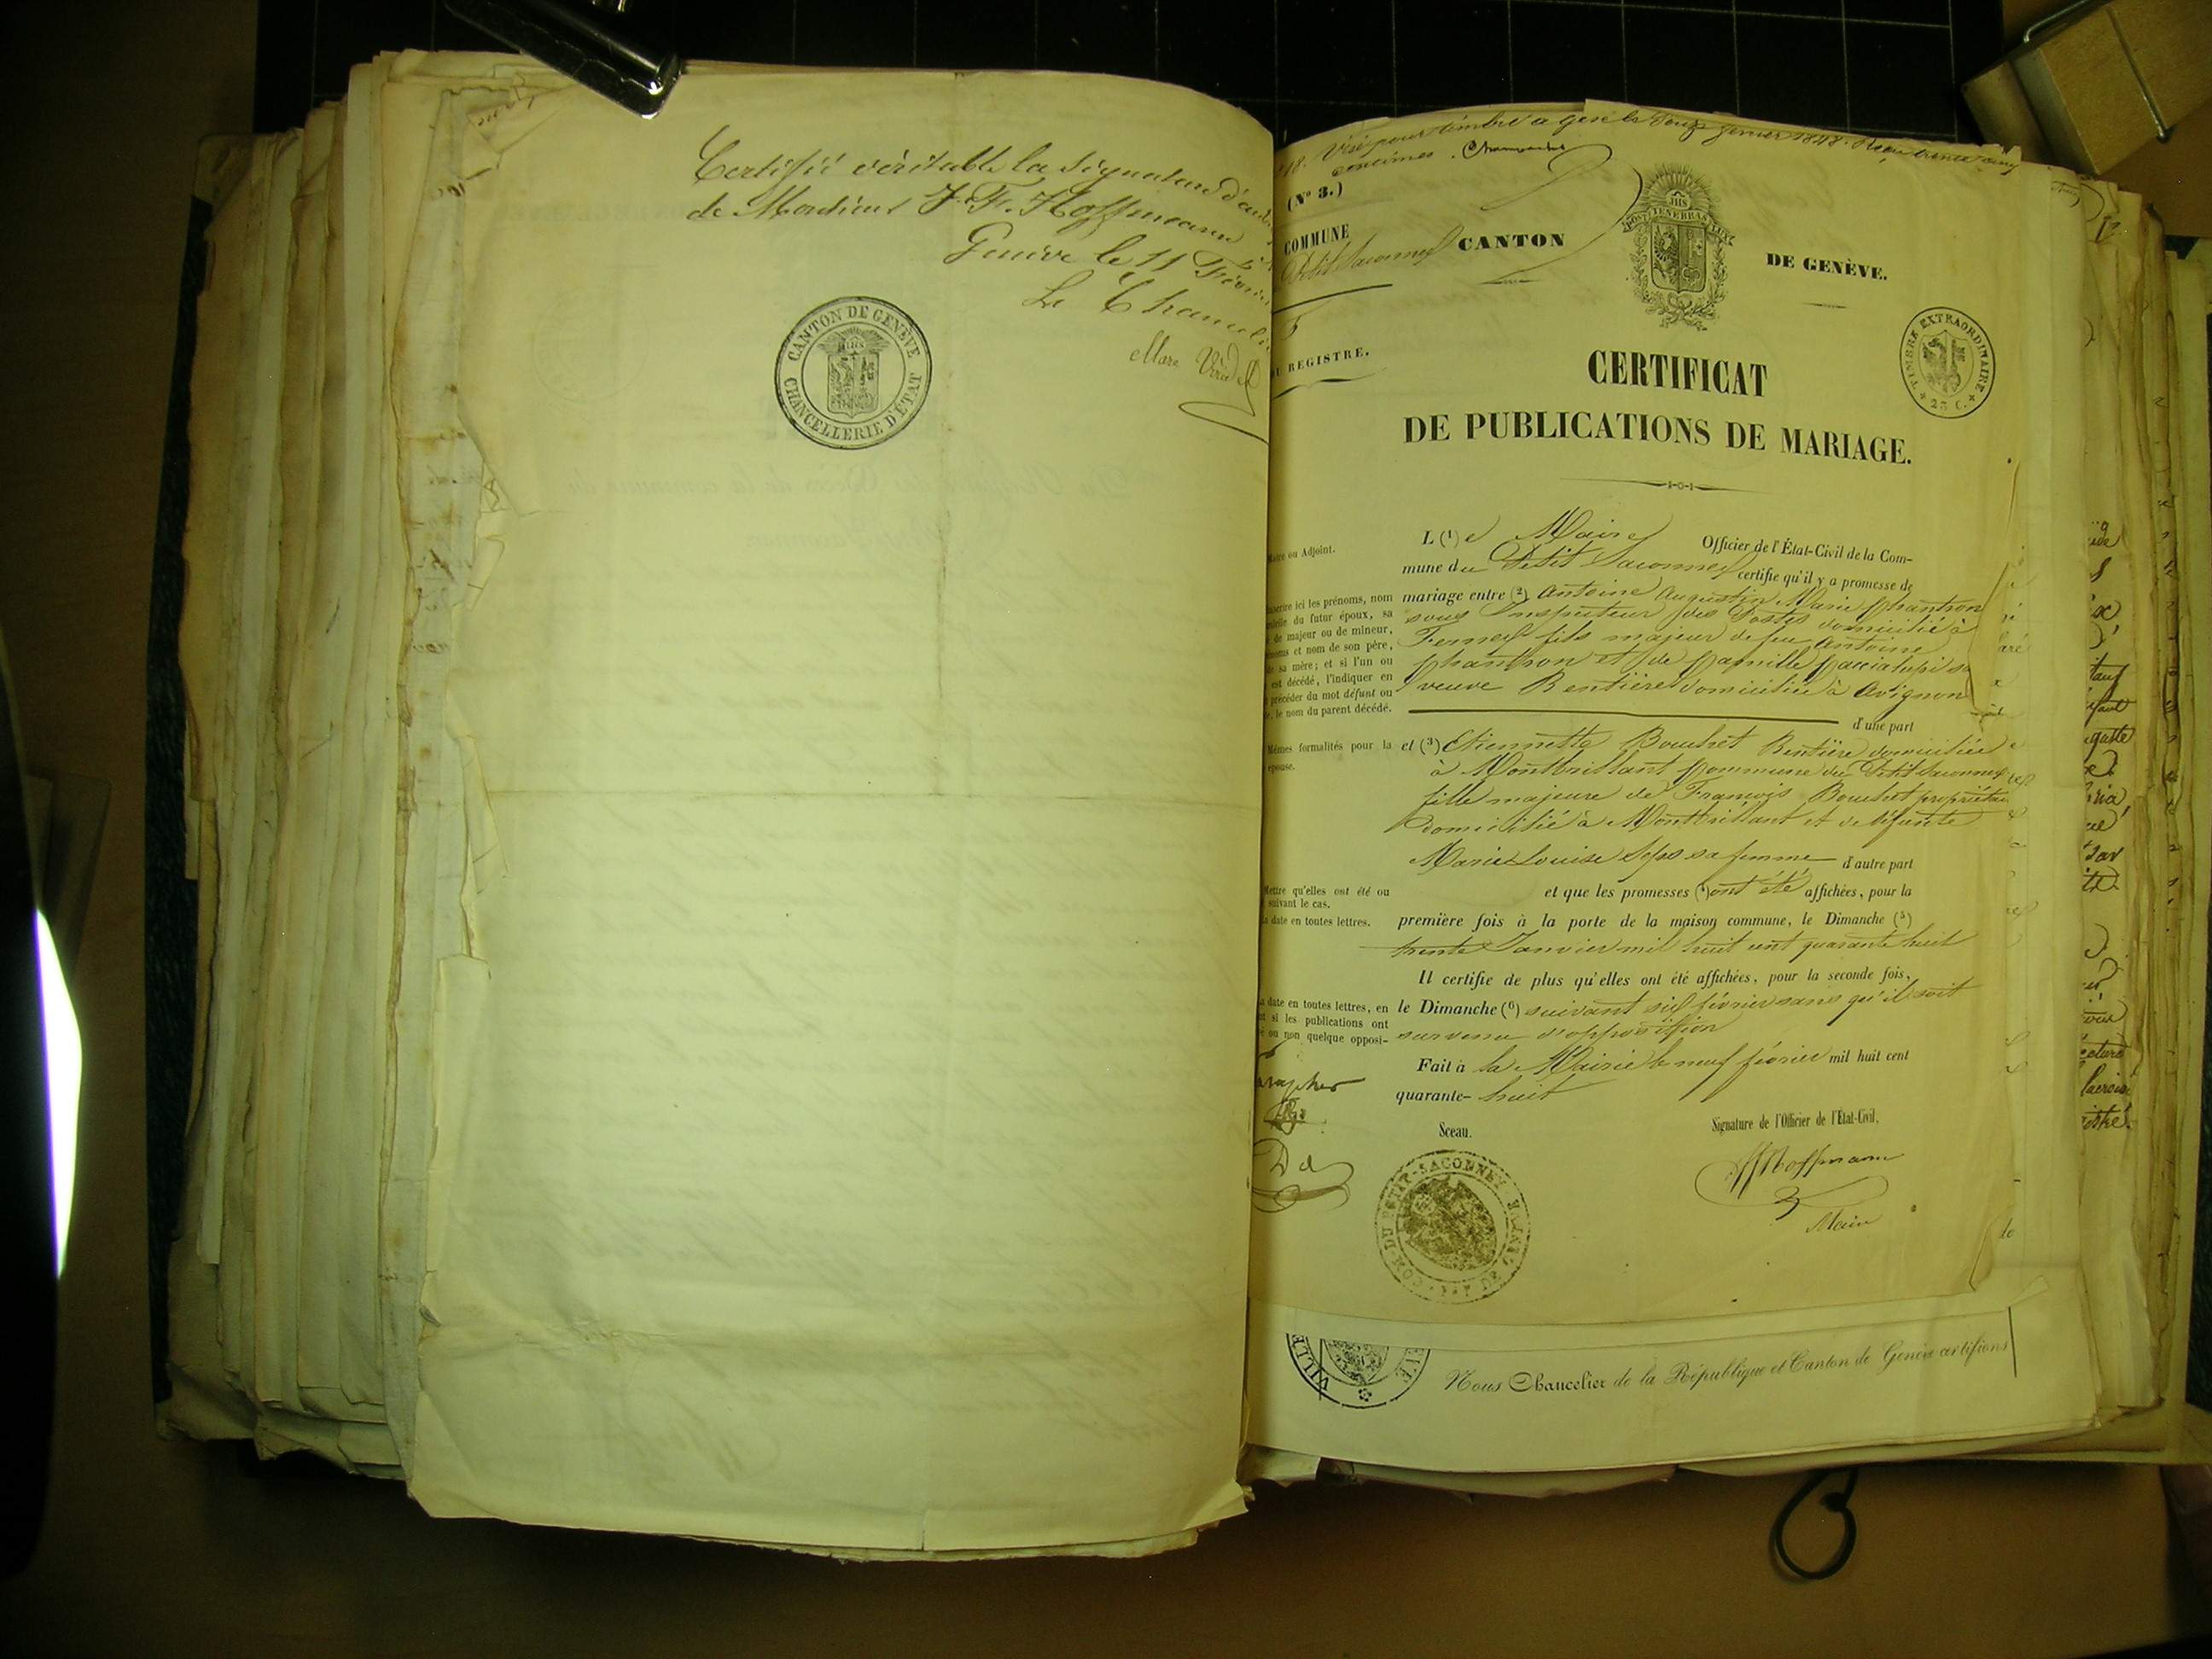 Certifié véritable la signature d'autre
de Monsieur J. F. Hoffmann
Genève le 11 Févri
Le Chancel
Marc Viridet
CANTON DE GENÈVE
CHANCELLERIE D'ÉTAT
Visé pour timbre à Gex le douze janvier 1848. Reçu trente cinq
centimes.
(N° 3.)
COMMUNE
Petit Saconnex
CANTON
DE GENÈVE.
JHS
POST TENEBRAS LUX
REGISTRE.
TIMBRE EXTRAORDINAIRE
25 C.
CERTIFICAT
DE PUBLICATIONS DE MARIAGE.
L (1) e Maire Officier de l'État-Civil de la Com-
mune du Petit Saconnex certifie qu'il y a promesse de
mariage entre (2) Antoine Augustin Marie Chantron
sous Inspecteur des Postes domicilié à
Ferney fils majeur de feu Antoine
Chantron et de Camille Cacciatupi sa
veuve Rentière domiciliée à Avignon
d'une part
et (3) Etiennette Bouchet Rentière domiciliée
à Montbrillant Commune du Petit Saconnex
fille majeure de François Bouchet propriétai
domicilié à Montbrillant et de défunte
Marie Louise Seps sa femme d'autre part
et que les promesses (4) ont été affichées, pour la
première fois à la porte de la maison commune, le Dimanche (5)
trente Janvier mil huit cent quarante huit
Il certifie de plus qu'elles ont été affichées, pour la seconde fois,
le Dimanche (6) suivant six février sans qu'il soit
survenu d'opposition
Fait à la Mairie le neuf février mil huit cent
quarante- huit
Sceau.
Signature de l'Officier de l'État-Civil,
Hoffmann
Maire
Maire ou Adjoint.
ici les prénoms, nom
du futur époux, sa
de majeur ou de mineur,
et nom de son père,
sa mère; et si l'un ou
est décédé, l'indiquer en
précéder du mot défunt ou
le nom du parent décédé.
Mêmes formalités pour la
épouse.
Mettre qu'elles ont été ou
suivant le cas.
La date en toutes lettres.
La date en toutes lettres, en
si les publications ont
ou non quelque opposi-
COM. DU PETIT-SACONNEX
VILLE
Nous Chancelier de la République et Canton de Genève certifions